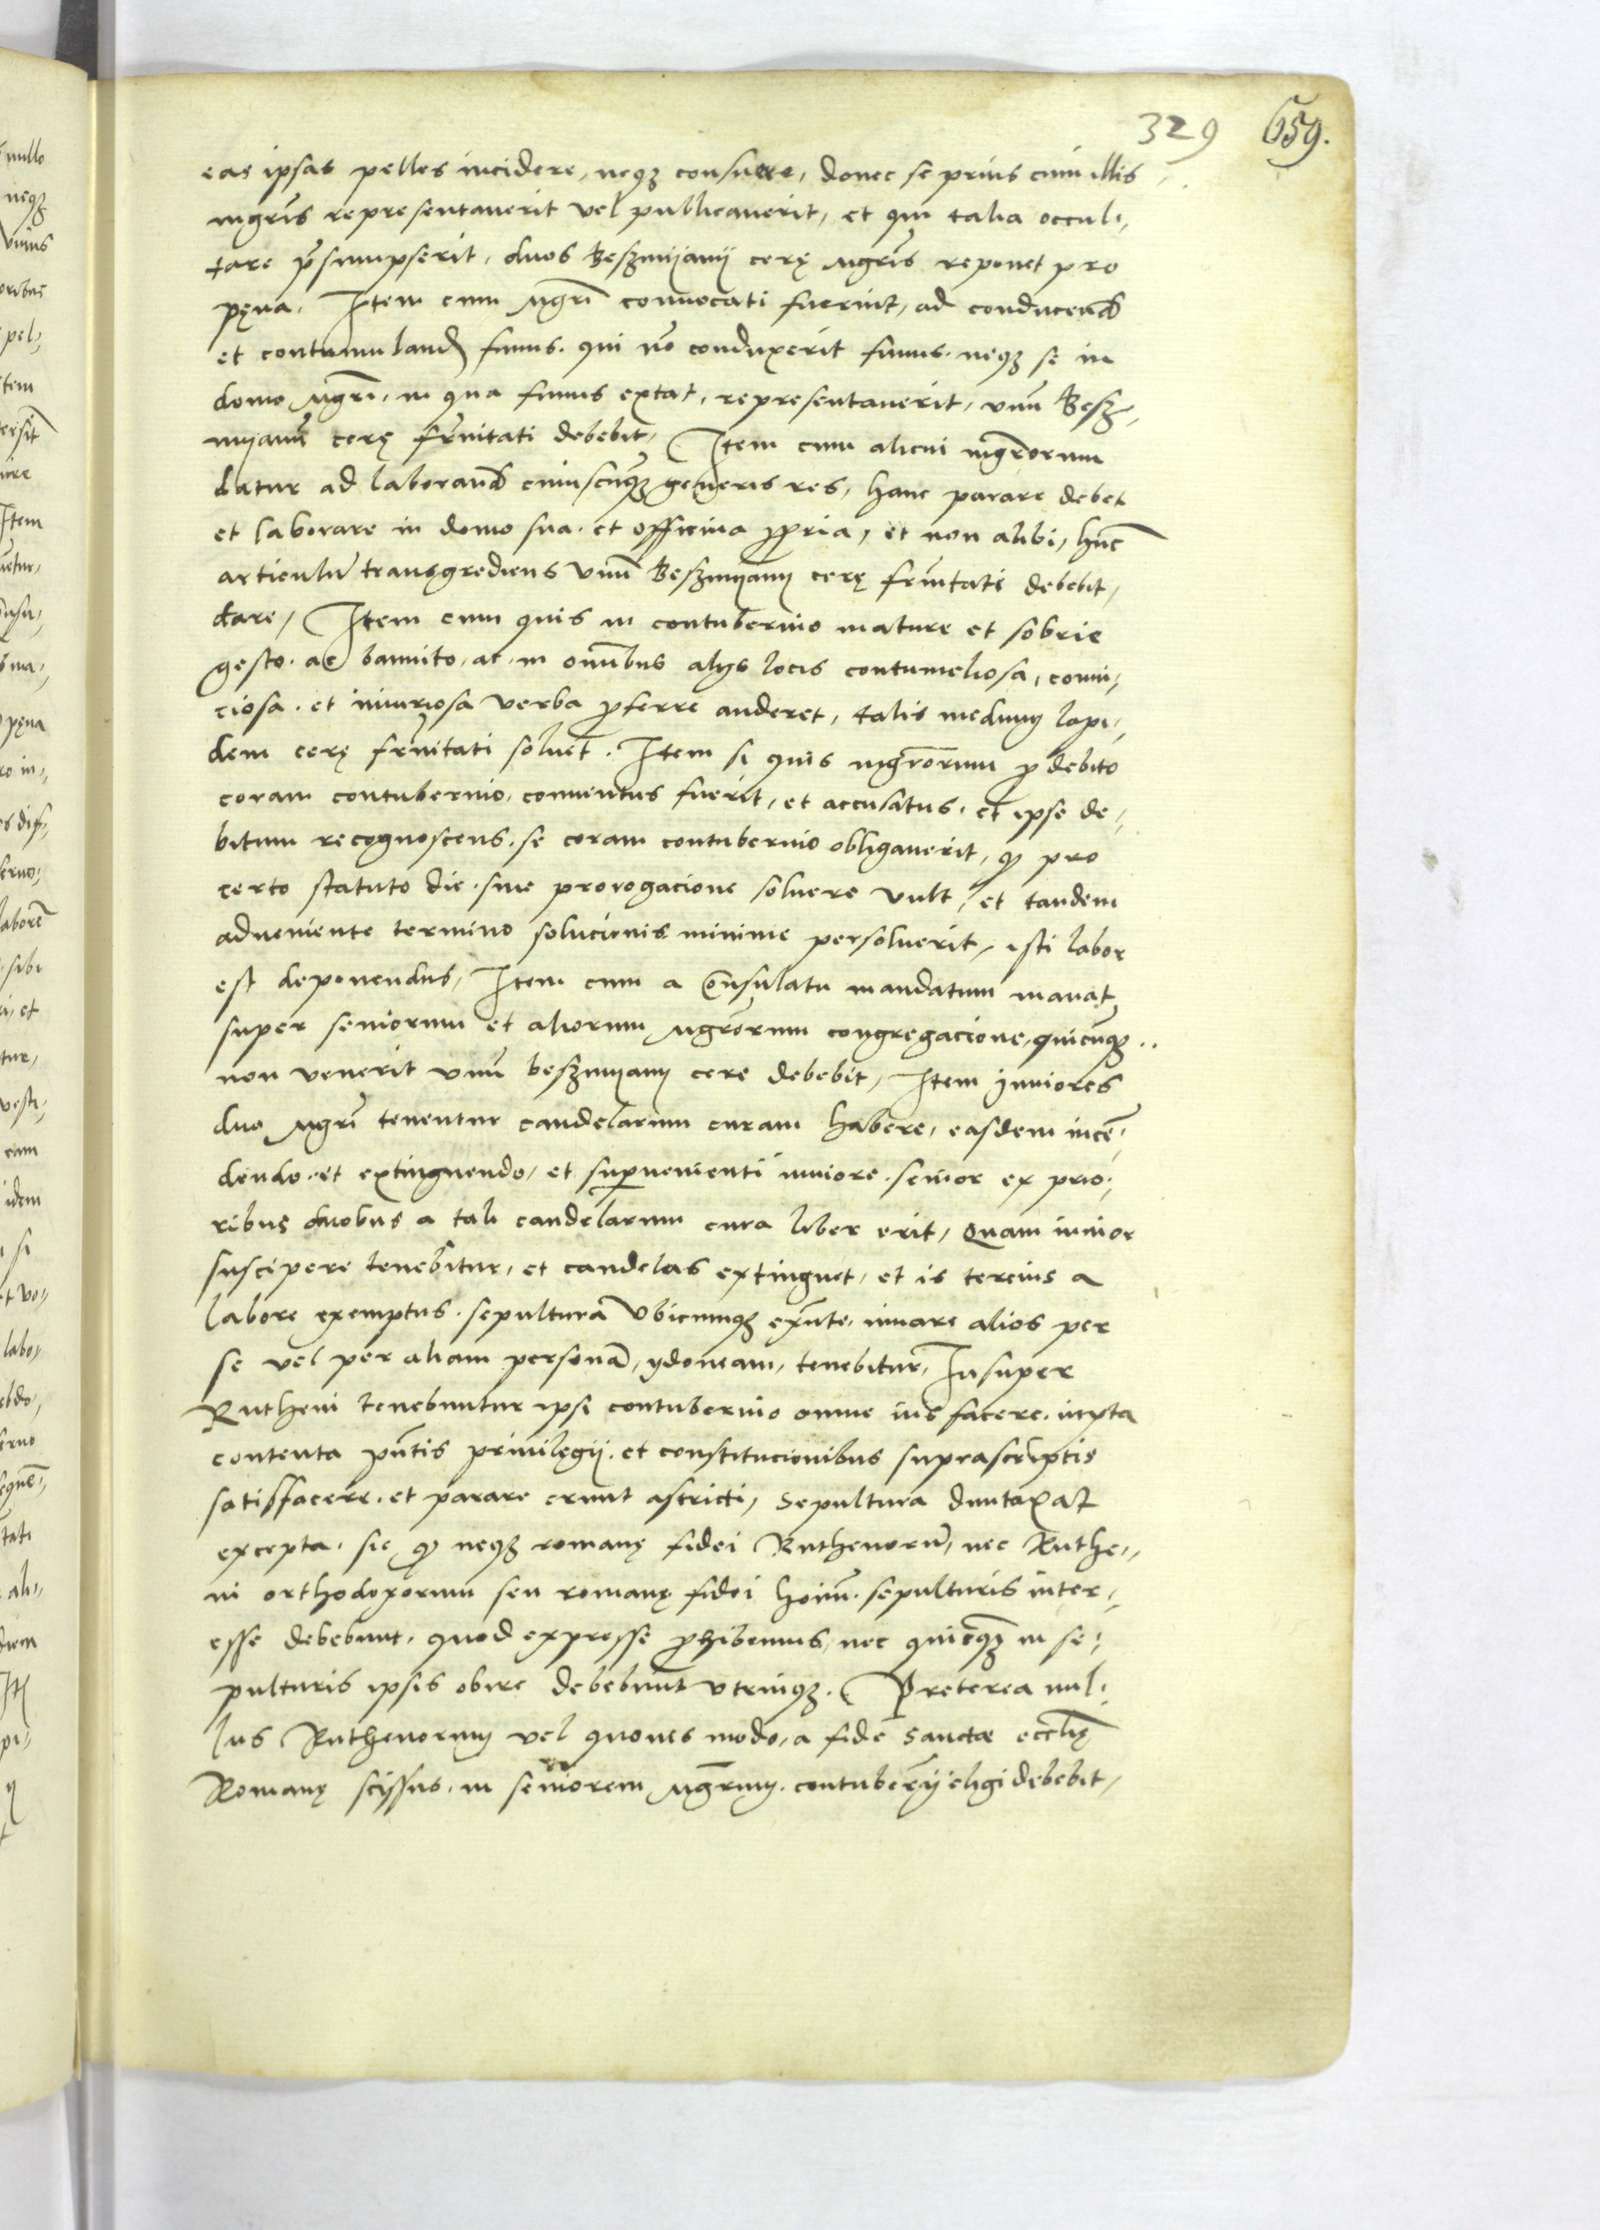 329 659.
eas ipsas pelles incidere, neqȝ consuere, donec se prius cum illis
mgr̃is representaverit vel publicaverit, et qui talia occul-
tare p̃sumpserit, duos Beszmyany cerę mgr̃is reponet pro
pęna. Item cum mgr̃i convocati fuerint, ad conducend̃
et contumuland̃ funus. qui nõ conduxerit funus. neqȝ se in
domo mgr̃i, in qua funus extat, representaverit, unũ Besz-
myanũ cerę fr̃nitati debebit, Item cum alicui mgr̃orum
datur ad laborand̃ cuiuscũqȝ generis res, hanc parare debet
et laborare in domo sua. et officina ꝓpria, et non alibi, hũc
articulũ transgrediens unũ Beszmyany cerę fr̃nitati debebit,
dare, Item cum quis in contubernio mature et sobrie
gesto. ac bannito, ac in omnibus alijs locis contumeliosa, convi-
ciosa. et iniuriosa verba ꝓferre auderet, talis medium lapi-
dem cerę fr̃nitati soluet. Item si quis mgr̃orum ꝓ debito
coram contubernio, conuentus fuerit, et accusatus. et ipse de-
bitum recognoscens. se coram contubernio obligaverit, ꝙ pro
certo statuto die. sine prorogacione soluere vult, et tandem
adueniente termino solucionis minime persoluerit, isti labor
est deponendus, Item cum a Cõnsulatu mandatum manat
super seniorum et aliorum mgr̃orum congregacione, quicũqȝ ..
non venerit unũ beszmyany cere debebit, Item iuniores
duo mgr̃i tenentur candelarum curam habere, easdem incẽ-
dendo. et extinguendo, et supuenienti iuniore. senior ex prio-
ribus duobus a tali candelarum cura liber erit, Quam iunior
suscipere tenebitur, et candelas extinguet, et is tercius a
labore exemptus. sepulturã ubicumqȝ ex̃nte. iuuare alios per
se vel per aliam personã, ydoneam, tenebitur, Insuper
Rutheni tenebuntur ipsi contubernio omne ius facere. iuxta
contenta p̃ntis privilegii. et constitucionibus suprascriptis
satisfacere. et parare erunt astricti, Sepultura duntaxat
excepta. sic ꝙ neqȝ romanę fidei Ruthenorũ, nec Ruthe-
ni orthodoxorum seu romanę fidei hoĩm. sepulturis inter-
esse debebunt. quod expresse ꝓhibemus, nec quicq̃ȝ in se-
pulturis ipsis obire debebunt utrinqȝ. Preterea nul-
lus Ruthenorum vel quovis modo, a fide sanctæ eccl̃ię
Romanę scissus. in seniorem mgr̃um. contubernij eligi debebit,